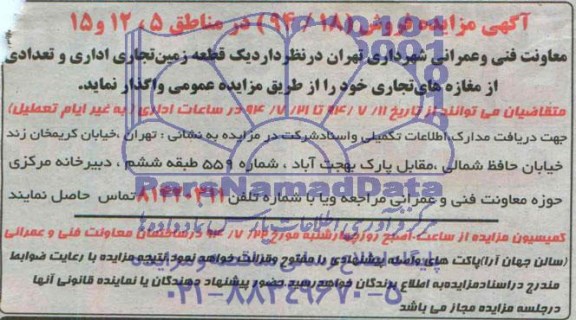 آگهی مزایده فروش (۹۴/۱۸) در مناطق ۵ ، ۱۲ و ۱۵
معاونت فنی وعمرانی شهرداری تهران درنظرداردیک قطعه زمین‌تجاری اداری و تعدادی
از مغازه های‌تجاری خود را از طریق مزایده عمومی واگذار نماید.
متقاضیان می توانند از تاریخ ۹۴/۷/۱۱ تا ۹۴/۷/۲۱ در ساعات اداری (به غیر ایام تعطیل)
جهت دریافت مدارک،اطلاعات تکمیلی واسنادشرکت در مزایده به نشانی : تهران ،خیابان کریمخان زند
خیابان حافظ شمالی ،مقابل پارک بهجت آباد ، شماره ۵۵۹ طبقه ششم ، دبیرخانه مرکزی
حوزه معاونت فنی و عمرانی مراجعه ویا با شماره تلفن تماس حاصل نمایند
کمیسیون مزایده از ساعت صبح روزچهارشنبه مورخ در ساختمان معاونت فنی و عمرانی
(سالن جهان آرا)پاکت های واصله پیشنهادی را مفتوح وقرائت خواهد نمود.نتیجه مزایده با رعایت ضوابط
مندرج دراسنادمزایده‌به اطلاع برندگان خواهدرسید.حضور پیشنهاد دهندگان یا نماینده قانونی آنها
درجلسه مزایده مجاز می باشد
ParsNamadData
مرکز فرآوری اطلاعات پارس نماد داده ها
۰۲۱-۸۸۳۴۹۶۷۰-۵